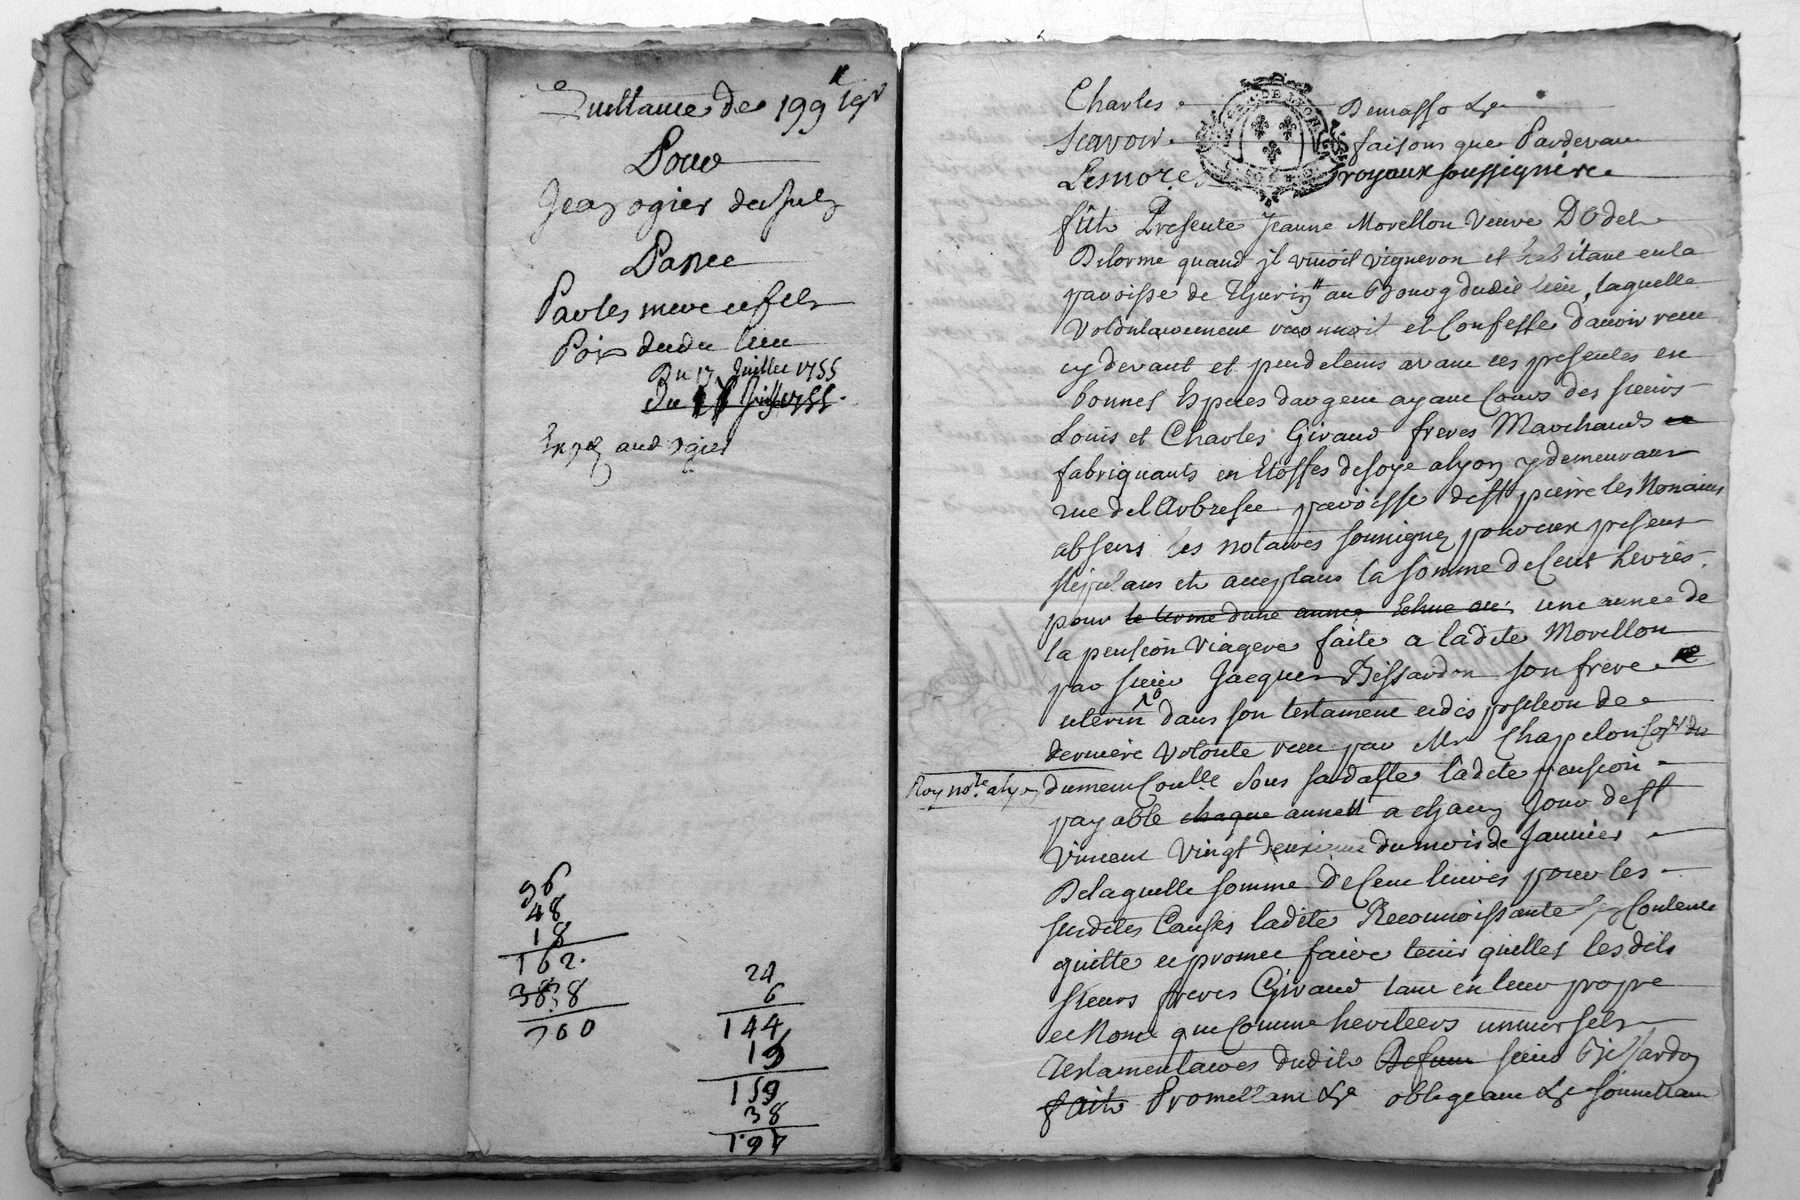 Quittance de 199ᴸ 19ˢ
Pour
Jean ogier
Passée
Par les mere et fils
Poix dudit lieu
Du 17 Juillet 1755
Du Juillet 1755
and ogier
96
48
18
162
38
760
24
6
144
15
159
38
197
Charles Demasso &c
Scavoir faisons que Pardevant
Les no.res royaux soussignés
fut Presente Jeanne Morellon Veuve D'Odet
Delorme quand jl vivoit vigneron et habitant en la
paroisse de Thurin au Bourg dudit lieu, laquelle
Volontairement reconnoit et Confesse d'avoir receu
cy devant et peu de tems avant ces presentes en
bonnes Especes d'argent ayant Cours des sieurs
Louis et Charles Giraud freres Marchands et
fabriquants en Etoffes de soye a lyon y demeurant
rue de l'Arbresle paroisse de st pierre les Nonains
absens les notaires soussignez pour eux present
stipulans et acceptans la somme de Cent Livres
pour le terme d'une année Echue au une année de
la pension Viagere faite a ladite Morellon
par sieur Jacques Bissardon son frere
uterin dans son testament et disposition de
derniere Volonté receu par Me Chapelon Con.er du
Roy no.re a lyon
dument Con.lle sous sa datte ladite pension
payable chaque année a chacun Jour de st
Vincent Vingt deuxieme du mois de Janvier
De laquelle somme de Cent livres pour les
susdites Causes ladite Reconnoissante Contente
quitte et promet faire tenir quittes lesdits
sieurs freres Giraud tant en leur propre
et Nom que Comme heritiers universels
Testamentaires dudit Defunt sieur Bissardon
fait Promettant &c obligeant &c soumettant